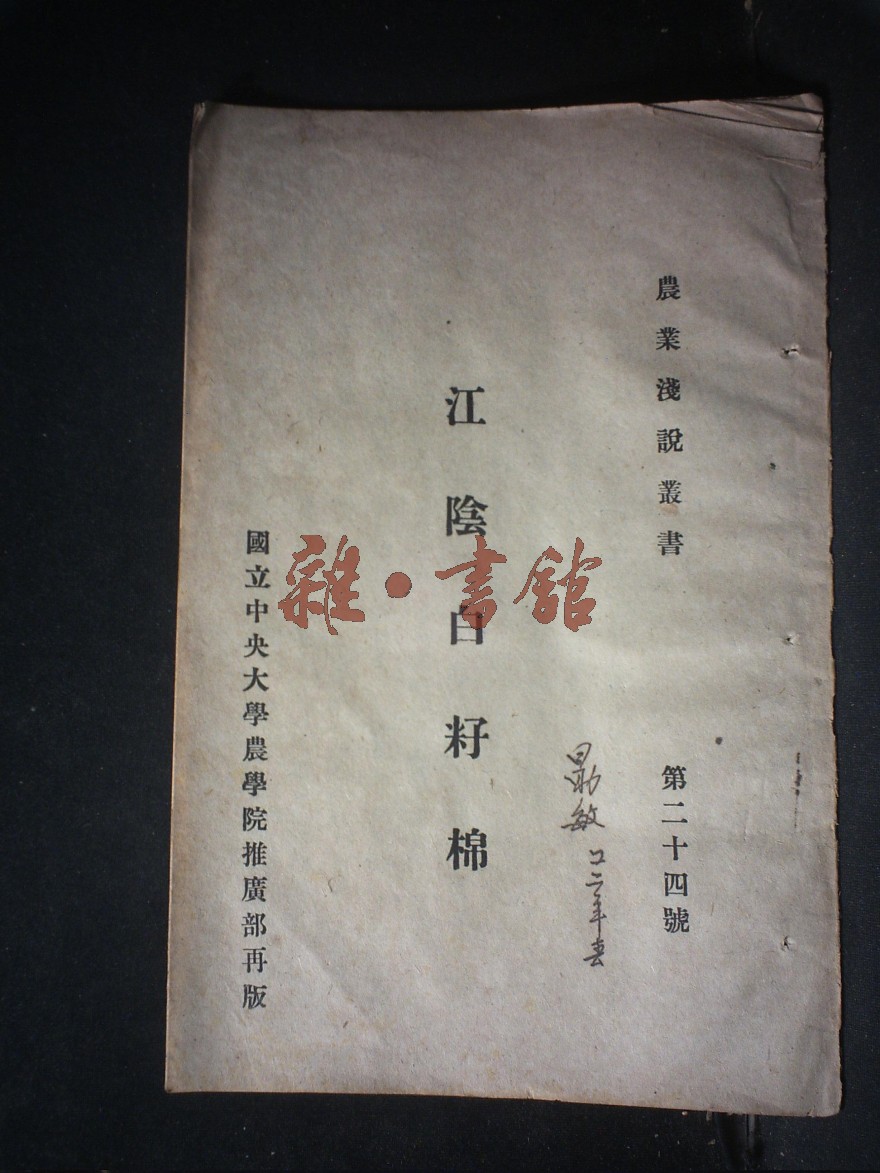 農業淺說叢書
第二十四號
江陰白籽棉
國立中央大學農學院推廣部再版
敏
二年春
雜·書館